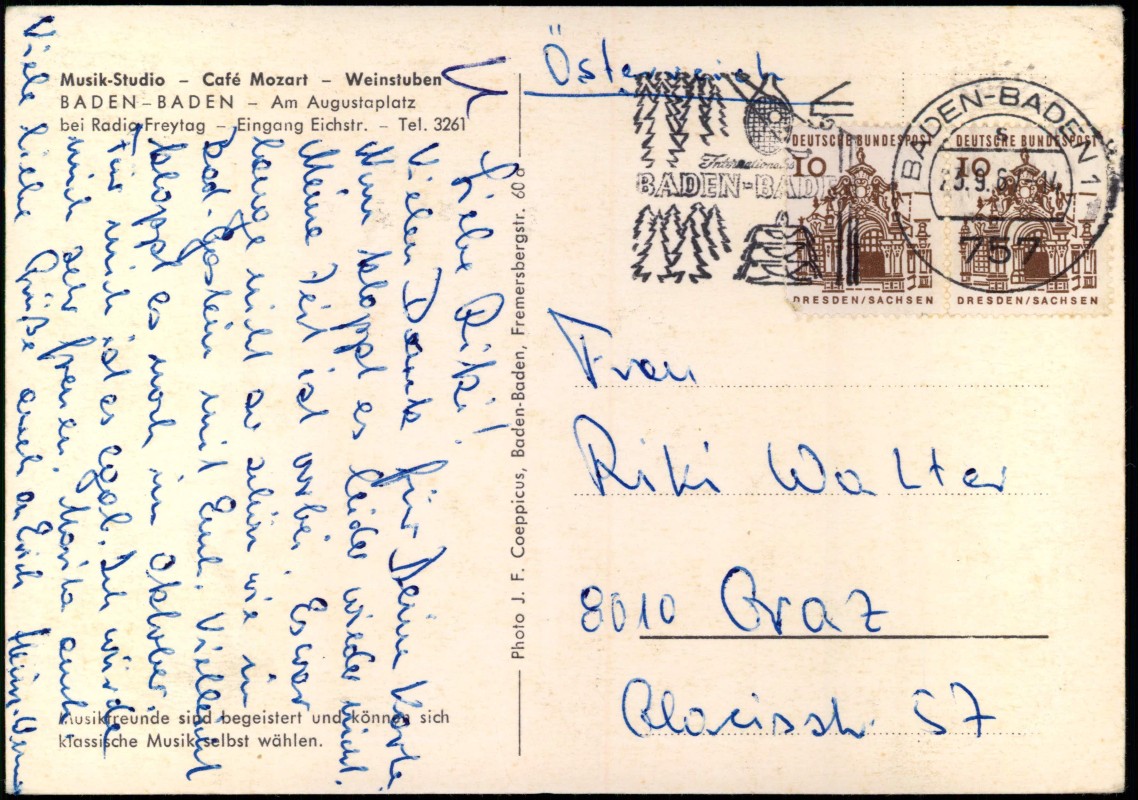 Musik-Studio – Café Mozart – Weinstuben
BADEN–BADEN – Am Augustaplatz
bei Radio Freytag – Eingang Eichstr. – Tel. 3261
Liebe Riki!
Vielen Dank für Deine Karte.
Nun kloppt es leider wieder nicht.
Meine Zeit ist vorbei. Es war
lange nicht so schön wie in
Bad-Gastein mit Euch. Vielleicht
kloppt es noch im Oktober.
Für mich ist es egal. Ich würde
mich sehr freuen. Marita auch.
Viele liebe Grüße auch an Erich
Musikfreunde sind begeistert und können sich
klassische Musik selbst wählen.
Photo J. F. Coeppicus, Baden-Baden, Fremersbergstr. 60a
Österreich
Internationales
BADEN-BAD
BADEN-BADEN 1
s
757
DEUTSCHE BUNDESPOST
10
DRESDEN/SACHSEN
DEUTSCHE BUNDESPOST
10
DRESDEN/SACHSEN
Frau
Riki Walter
8010 Graz
Glacisstr. 57